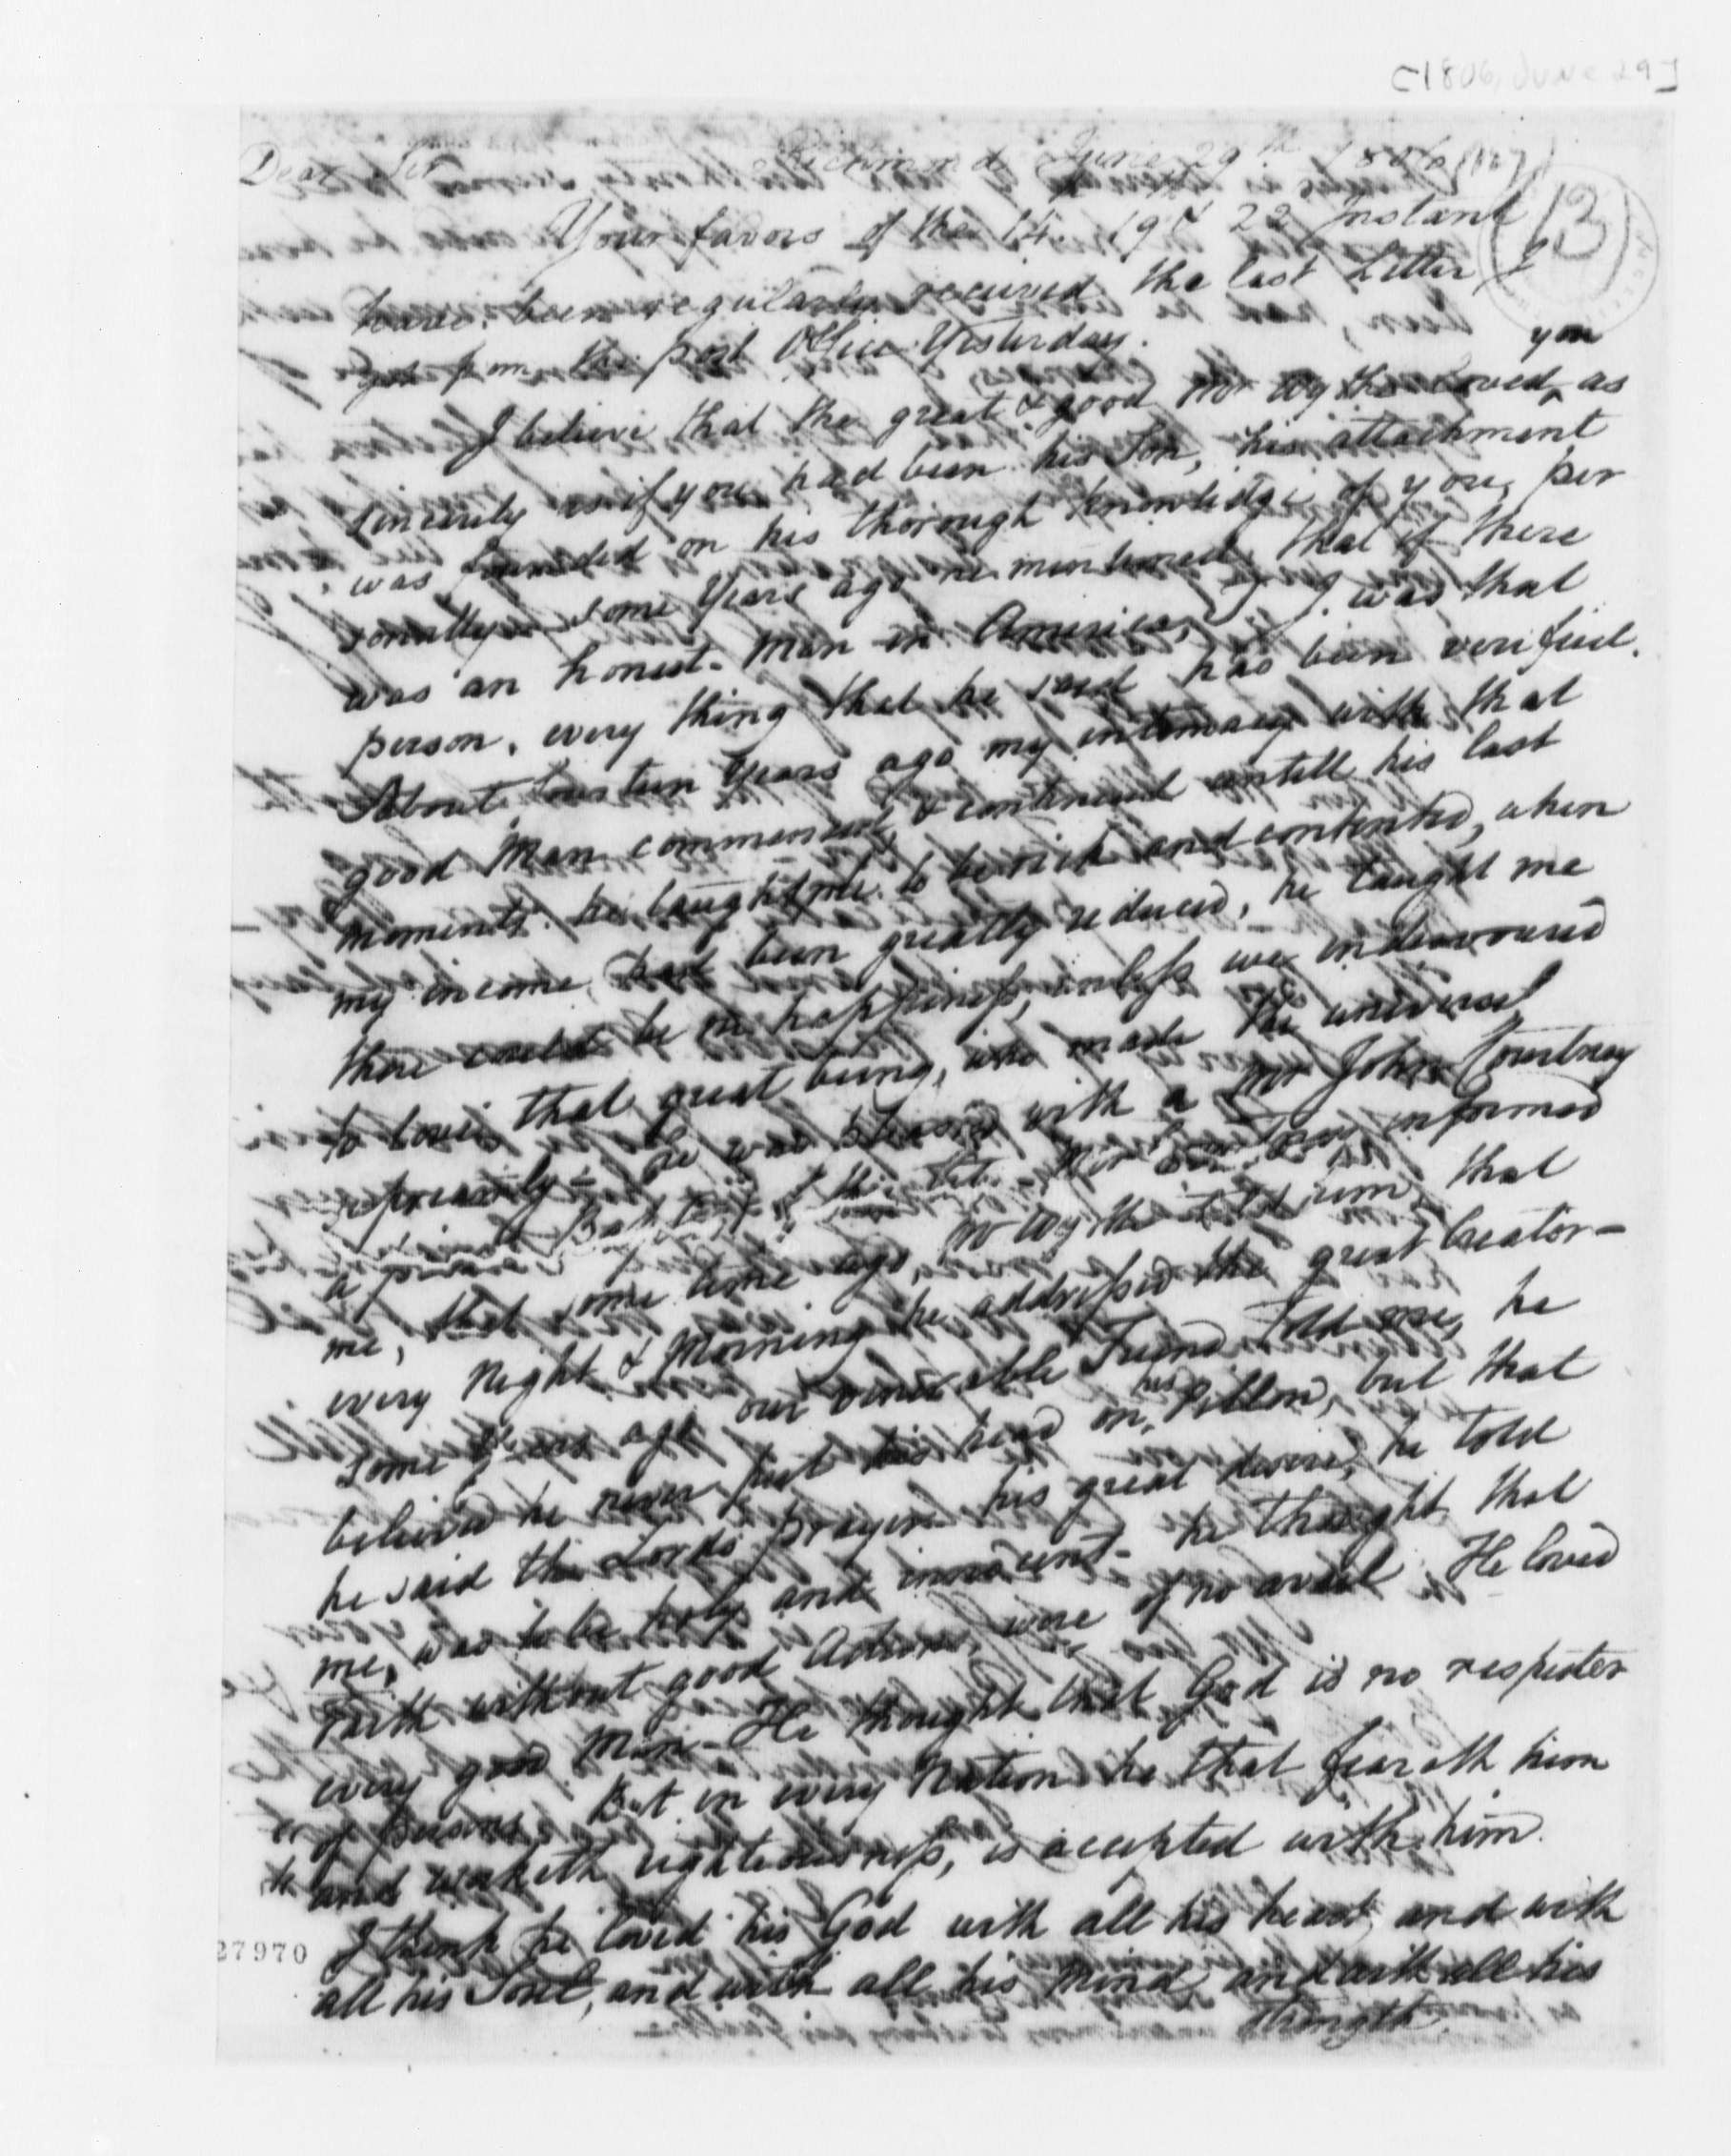 [1806, June 29]
Dear Sir Richmond June 29th 1806
13
Your favors of the 14. 19 & 22 Instant
have been regularly received the last Letter I
got from the post Office Yesterday.
you
I believe that the great & good Mr Wythe loved ^ as
sincerely as if you had been his Son, his attachment
was founded on his thorough knowledge of you, per
sonally some Years ago he mentioned, that if there
was an honest Man in America, T. J. was that
person. every thing that he said has been verified.
About fourteen Years ago my intimacy with that
good Man commenced, & continued untill his last
moments. he taught me to be rich and contented, when
my income had been greatly reduced, he taught me
there could be no happiness, unless we endeavoured
to love that great being, who made the universe
he was with a Mr John Courtney
a Baptist informed
me, that some time ago, Mr Wythe told him, that
every Night & Morning he addressed the great Creator—
Some Years ago our venerable Friend told me, he
his
believed he never put his head on ^ Pillow, but that
he said the Lords prayer his great desire, he told
me, was to be holy and innocent— he thought, that
Faith without good Actions, were of no avail. He loved
every good Man— He thought that God is no respecter
of persons. But in every Nation he that feareth him
and worketh righteousness, is accepted with him.
I think he loved his God with all his heart, and with
all his Soul, and with all his Mind, and with all his
strength.
27970